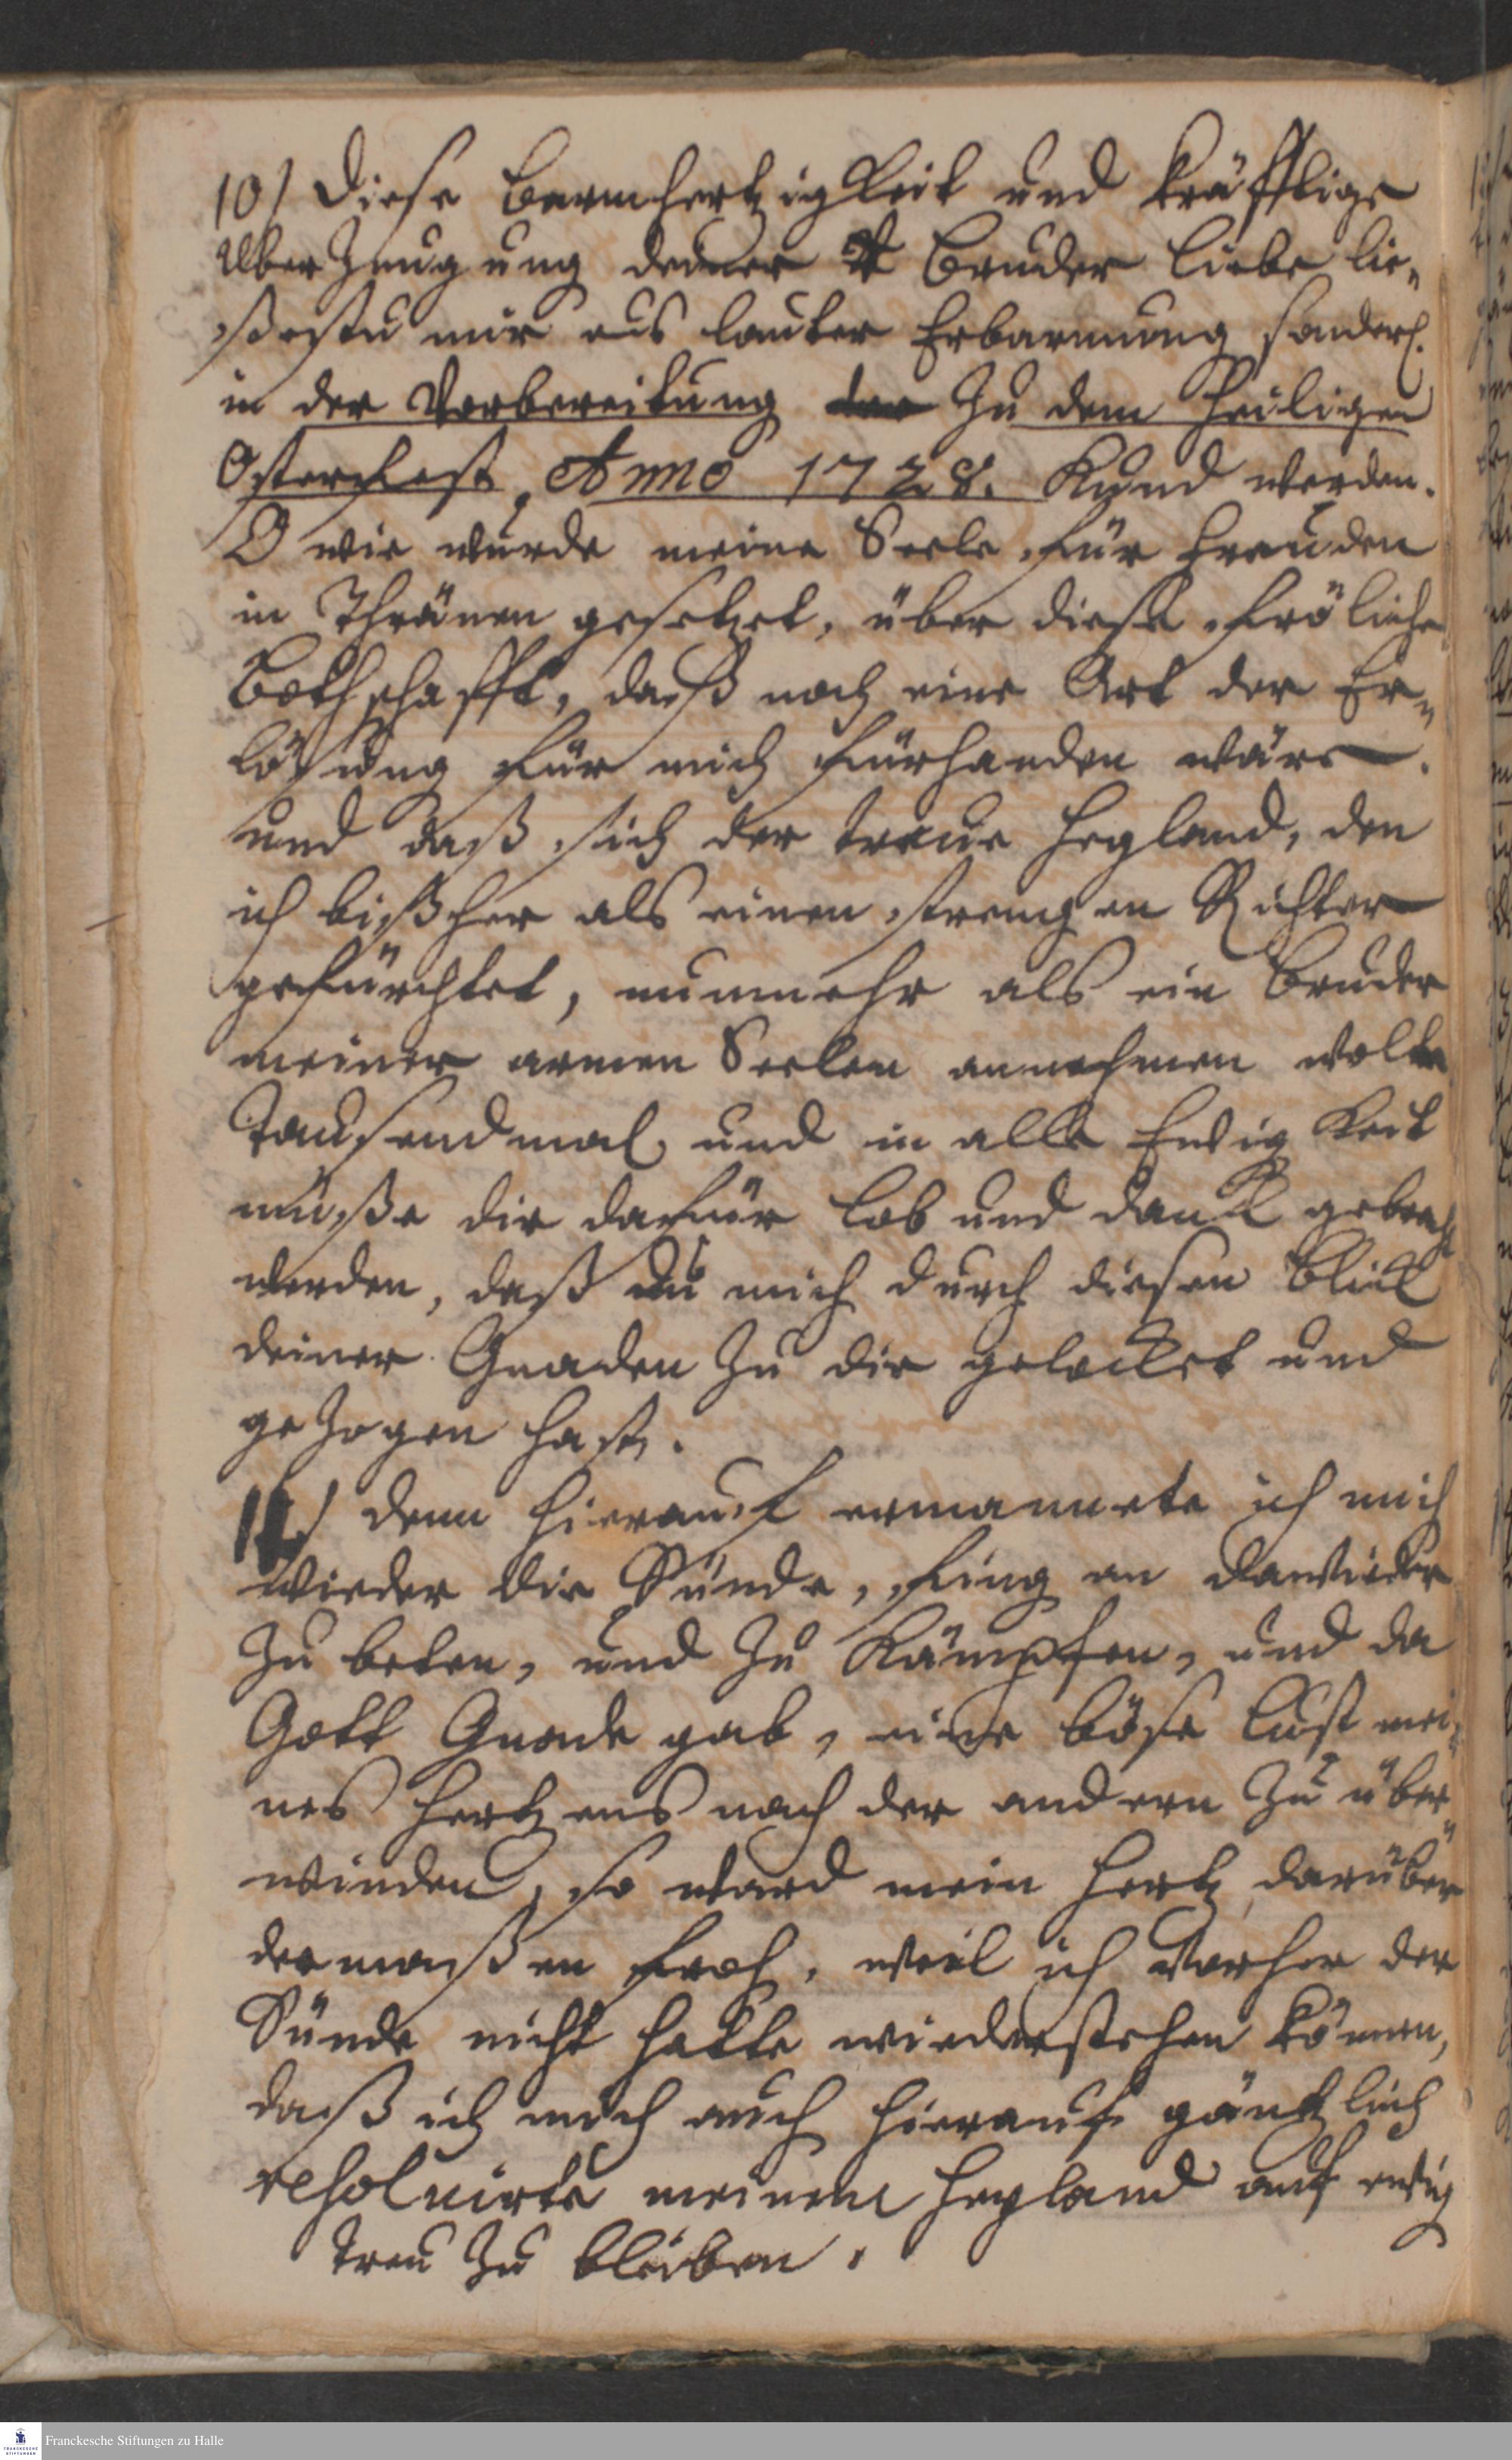 10) Diese Barmhertzigkeit und kräfftige
Uberzeugung deiner Bruder Liebe lie-
ßestu mir aus lauter Erbarmung sonderl.
in der Vorbereitung der zu dem heiligen
Osterfest, Anno 1728. Kund werden.
O wie wurde meine Seele für Freuden
in Thränen gesetzet, über diese fröliche
Bothschafft, daß noch eine Art der Er-
lösung für mich fürhanden wäre.
und daß sich der treue Heyland, den
ich bißher als einen strengen Richter
gefürchtet, nunmehr als ein Bruder
meiner armen Seelen annehmen wolte
Tausendmal und in alle Ewigkeit
müße dir dafür Lob und Danck gebracht
werden, daß du mich durch diesen Blick
deiner Gnaden zu dir gelocket und
gezogen hast.
11) Denn hierauf ermannete ich mich
wieder die Sünde, fing an dawieder
zu beten, und zu Kämpfen, und da
Gott Gnade gab, eine böse Lust mei-
nes Hertzens nach der andern zu über-
winden, so ward mein Hertz darüber
dermaßen froh, weil ich vorher der
Sünde nicht hatte wiederstehen können,
daß ich mich auch hierauf gäntzlich
resolvirte meinem Heyland auf ewig
treu zu bleiben.
Franckesche Stiftungen zu Halle